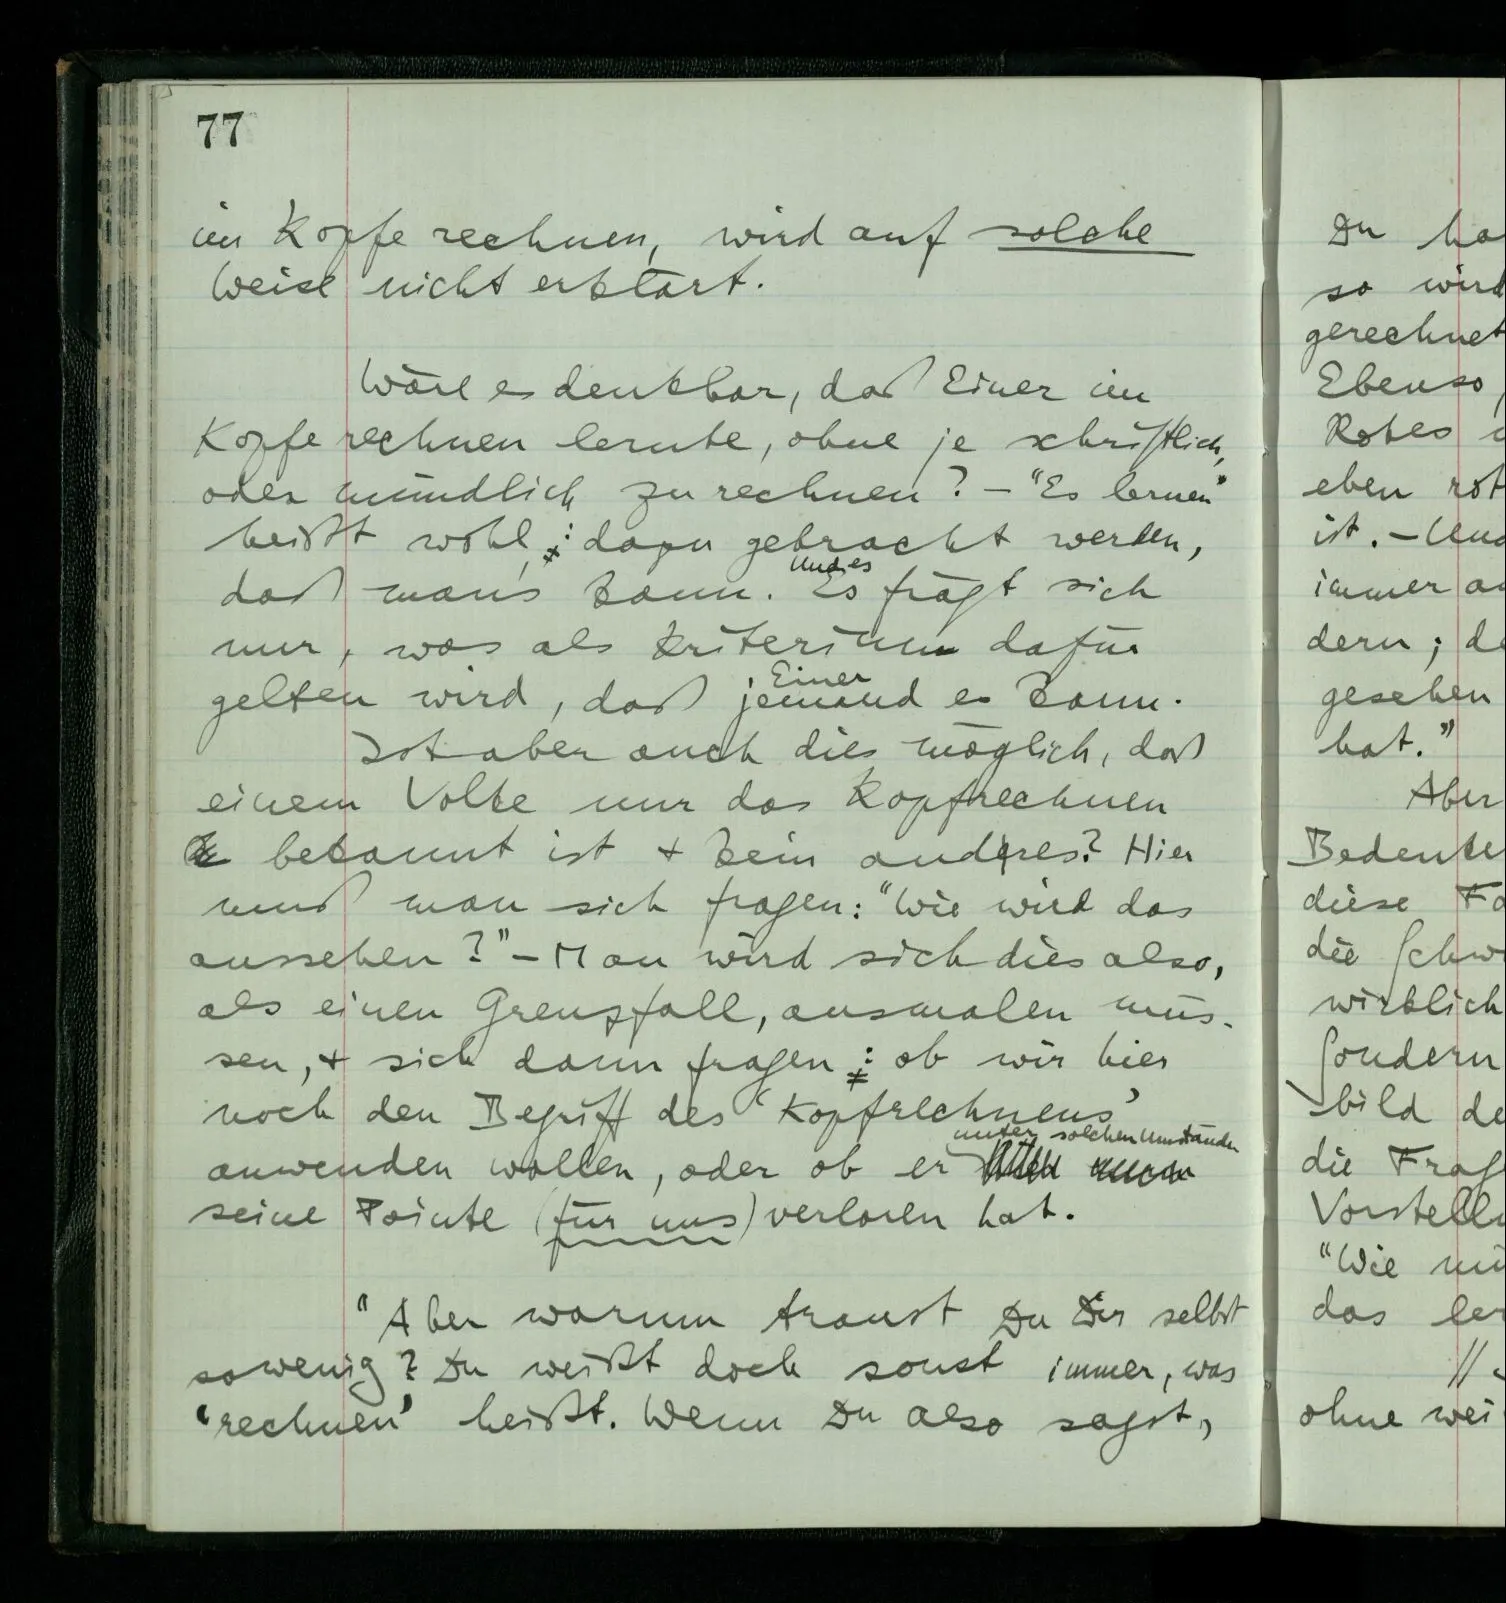 77
im Kopfe rechnen, wird auf solche
Weise nicht erklärt.
Wäre es denkbar, daß Einer im
Kopfe rechnen lernte, ohne je schriftlich,
oder mündlich zu rechnen? – "Es lernen"
heißt wohl,: dazu gebracht werden,
Und es
daß man's kann. Es frägt sich
nur, was als Kriterium dafür
Einer
gelten wird, daß jemand es kann.
Ist aber auch dies möglich, daß
einem Volke nur das Kopfrechnen
bekannt ist + kein andres? Hier
muß man sich fragen: "Wie wird das
aussehen?" – Man wird sich dies also,
als einen Grenzfall, ausmalen müs-
sen, + sich dann fragen: ob wir hier
noch den Begriff des 'Kopfrechnens'
unter solchen Umständen
anwenden wollen, oder ob er
seine Pointe (für uns) verloren hat.
"Aber warum traust Du Dir selbst
sowenig? Du weißt doch sonst immer, was
'rechnen' heißt. Wenn Du also sagst,
Du ha
so wird
gerechnet
Ebenso,
Rotes
eben rot
ist. – Und
immer an
dern; de
gesehen
hat."
Aber
Bedeute
diese Fa
die Schwi
wirklich
sondern
bild de
die Frag
Vorstellu
"Wie mü
das ler
//
ohne wei